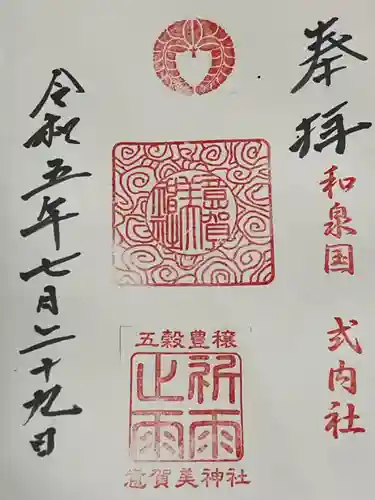 奉拝
和泉国 式内社
意賀美神社
五穀豊穣
祈雨
止雨
意賀美神社
令和五年七月二十九日